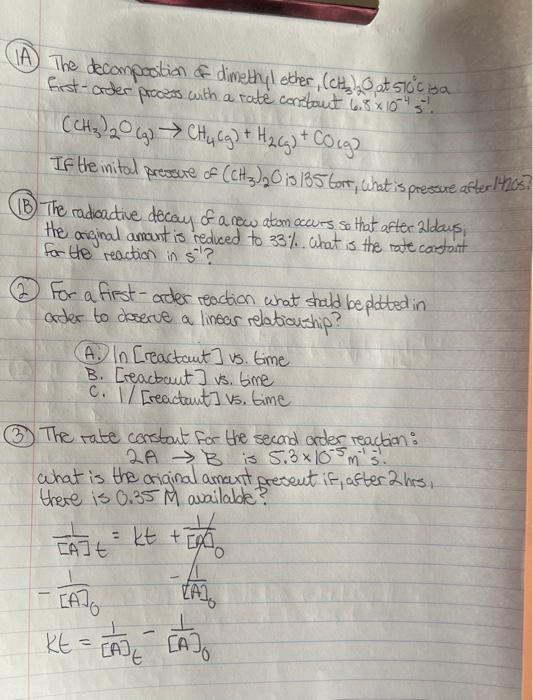 1A) The decomposition of dimethyl ether, (CH3)2O, at 510°C is a
first-order process with a rate constant 6.8 x 10⁻⁴ s⁻¹.
(CH3)2O(g) → CH4(g) + H2(g) + CO(g)
If the inital pressure of (CH3)2O is 135 torr, what is pressure after 1420s?
1B) The radioactive decay of a new atom occurs so that after 21 days,
the original amount is reduced to 33%. What is the rate constant
for the reaction in s⁻¹?
2) For a first-order reaction what should be plotted in
order to observe a linear relationship?
A. ln [reactant] vs. time
B. [reactant] vs. time
C. 1/[reactant] vs. time
3) The rate constant for the second order reaction:
2A → B is 5.3 x 10⁻⁵ m⁻¹ s⁻¹.
what is the original amount present if, after 2 hrs,
there is 0.35 M available?
1/[A]t = kt + 1/[A]0
- 1/[A]0 - 1/[A]0
kt = 1/[A]t - 1/[A]0